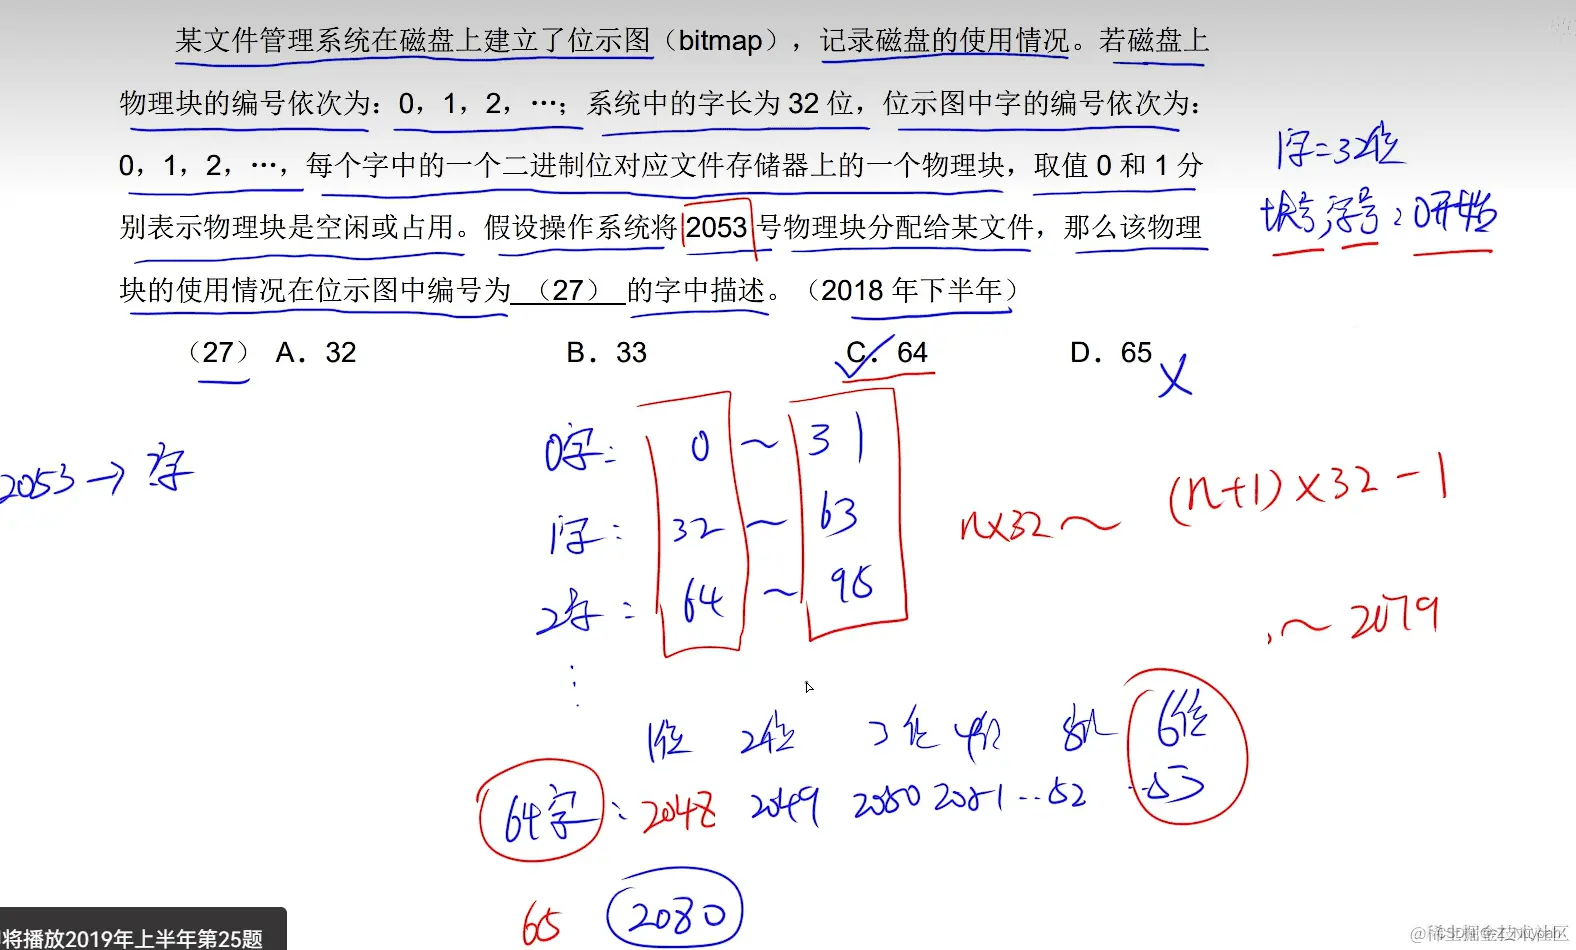 某文件管理系统在磁盘上建立了位示图（bitmap），记录磁盘的使用情况。若磁盘上
物理块的编号依次为：0，1，2，…；系统中的字长为 32 位，位示图中字的编号依次为：
0，1，2，…，每个字中的一个二进制位对应文件存储器上的一个物理块，取值 0 和 1 分
别表示物理块是空闲或占用。假设操作系统将 2053 号物理块分配给某文件，那么该物理
块的使用情况在位示图中编号为 （27） 的字中描述。（2018 年下半年）
1字=32位
块号,字号：0开始
（27） A．32 B．33 C．64 D．65
0字： 0 ~ 31
2053→ 字
1字： 32 ~ 63
n×32 ~ (n+1)×32-1
2字： 64 ~ 95
~ 2079
1位 2位 3位 4位 5位 6位
64字： 2048 2049 2050 2051 ··52 ··53
65 2080
即将播放2019年上半年第25题
@稀土掘金技术社区